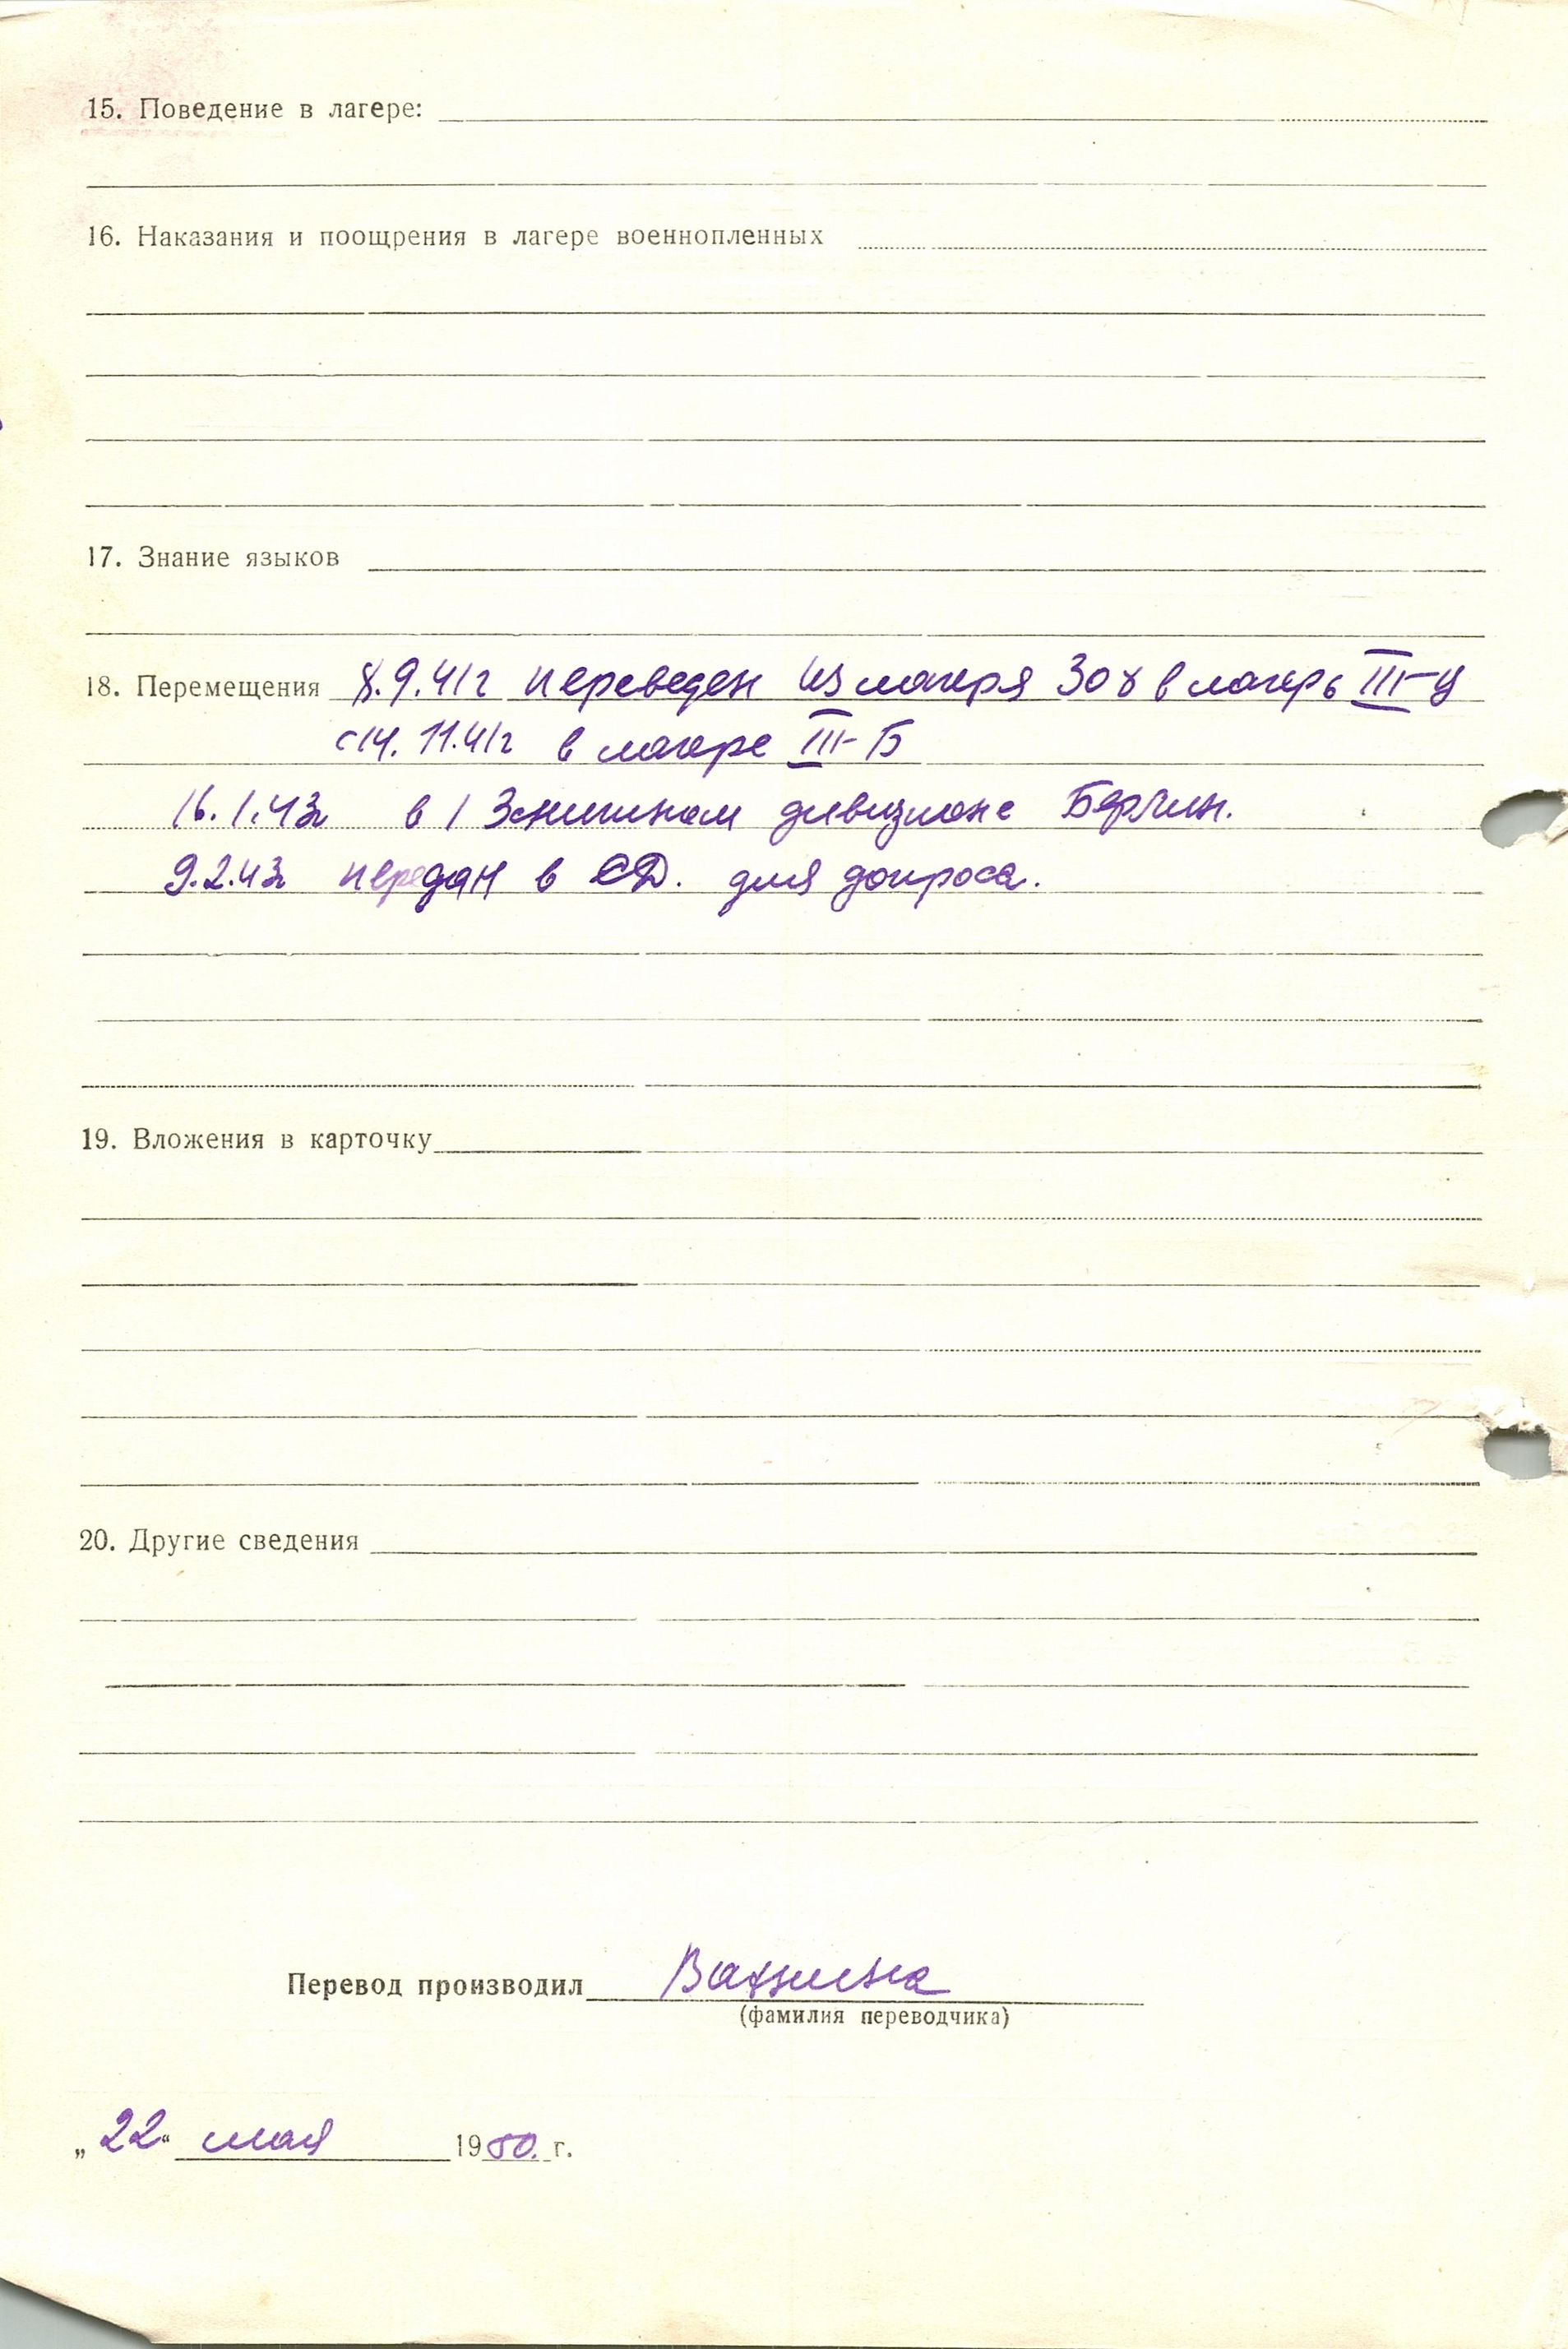 15. Поведение в лагере:
16. Наказания и поощрения в лагере военнопленных
17. Знание языков
18. Перемещения 8.9.41г переведен из лагеря 308 в лагерь III-Ц
с 14. 11.41г в лагере III-Б
16.1.43г в 1 Зенитном дивизионе Берлин.
9.2.43г передан в СД. для допроса.
19. Вложения в карточку
20. Другие сведения
Перевод производил
(фамилия переводчика)
„22“ мая 1950. г.